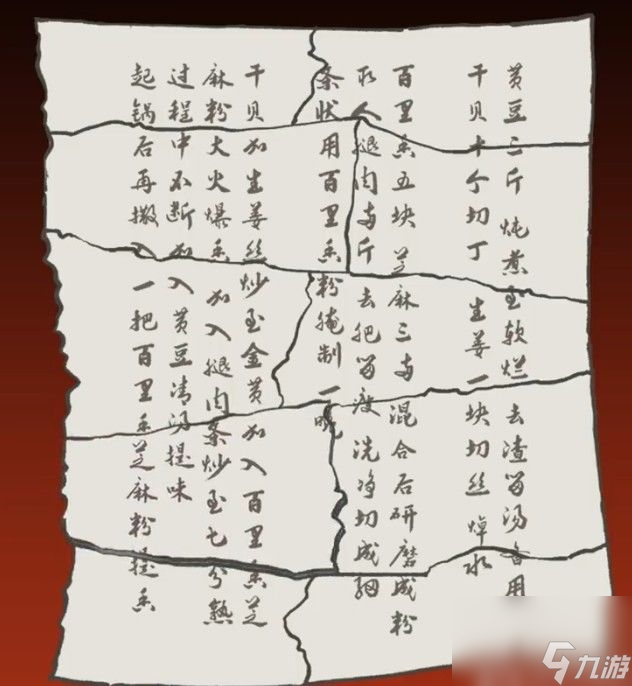 黄豆三斤炖煮至软烂去渣留汤备用
干贝十个切丁生姜一块切丝焯水
百里香五块芝麻三两混合后研磨成粉
取人腿肉两斤去肥留瘦洗净切成细
条状用百里香粉腌制一晚
干贝加生姜丝炒至金黄加入百里香芝
麻粉大火爆香加入腿肉条炒至七分熟
过程中不断加入黄豆清汤提味
起锅后再撒入一把百里香芝麻粉提香
九游